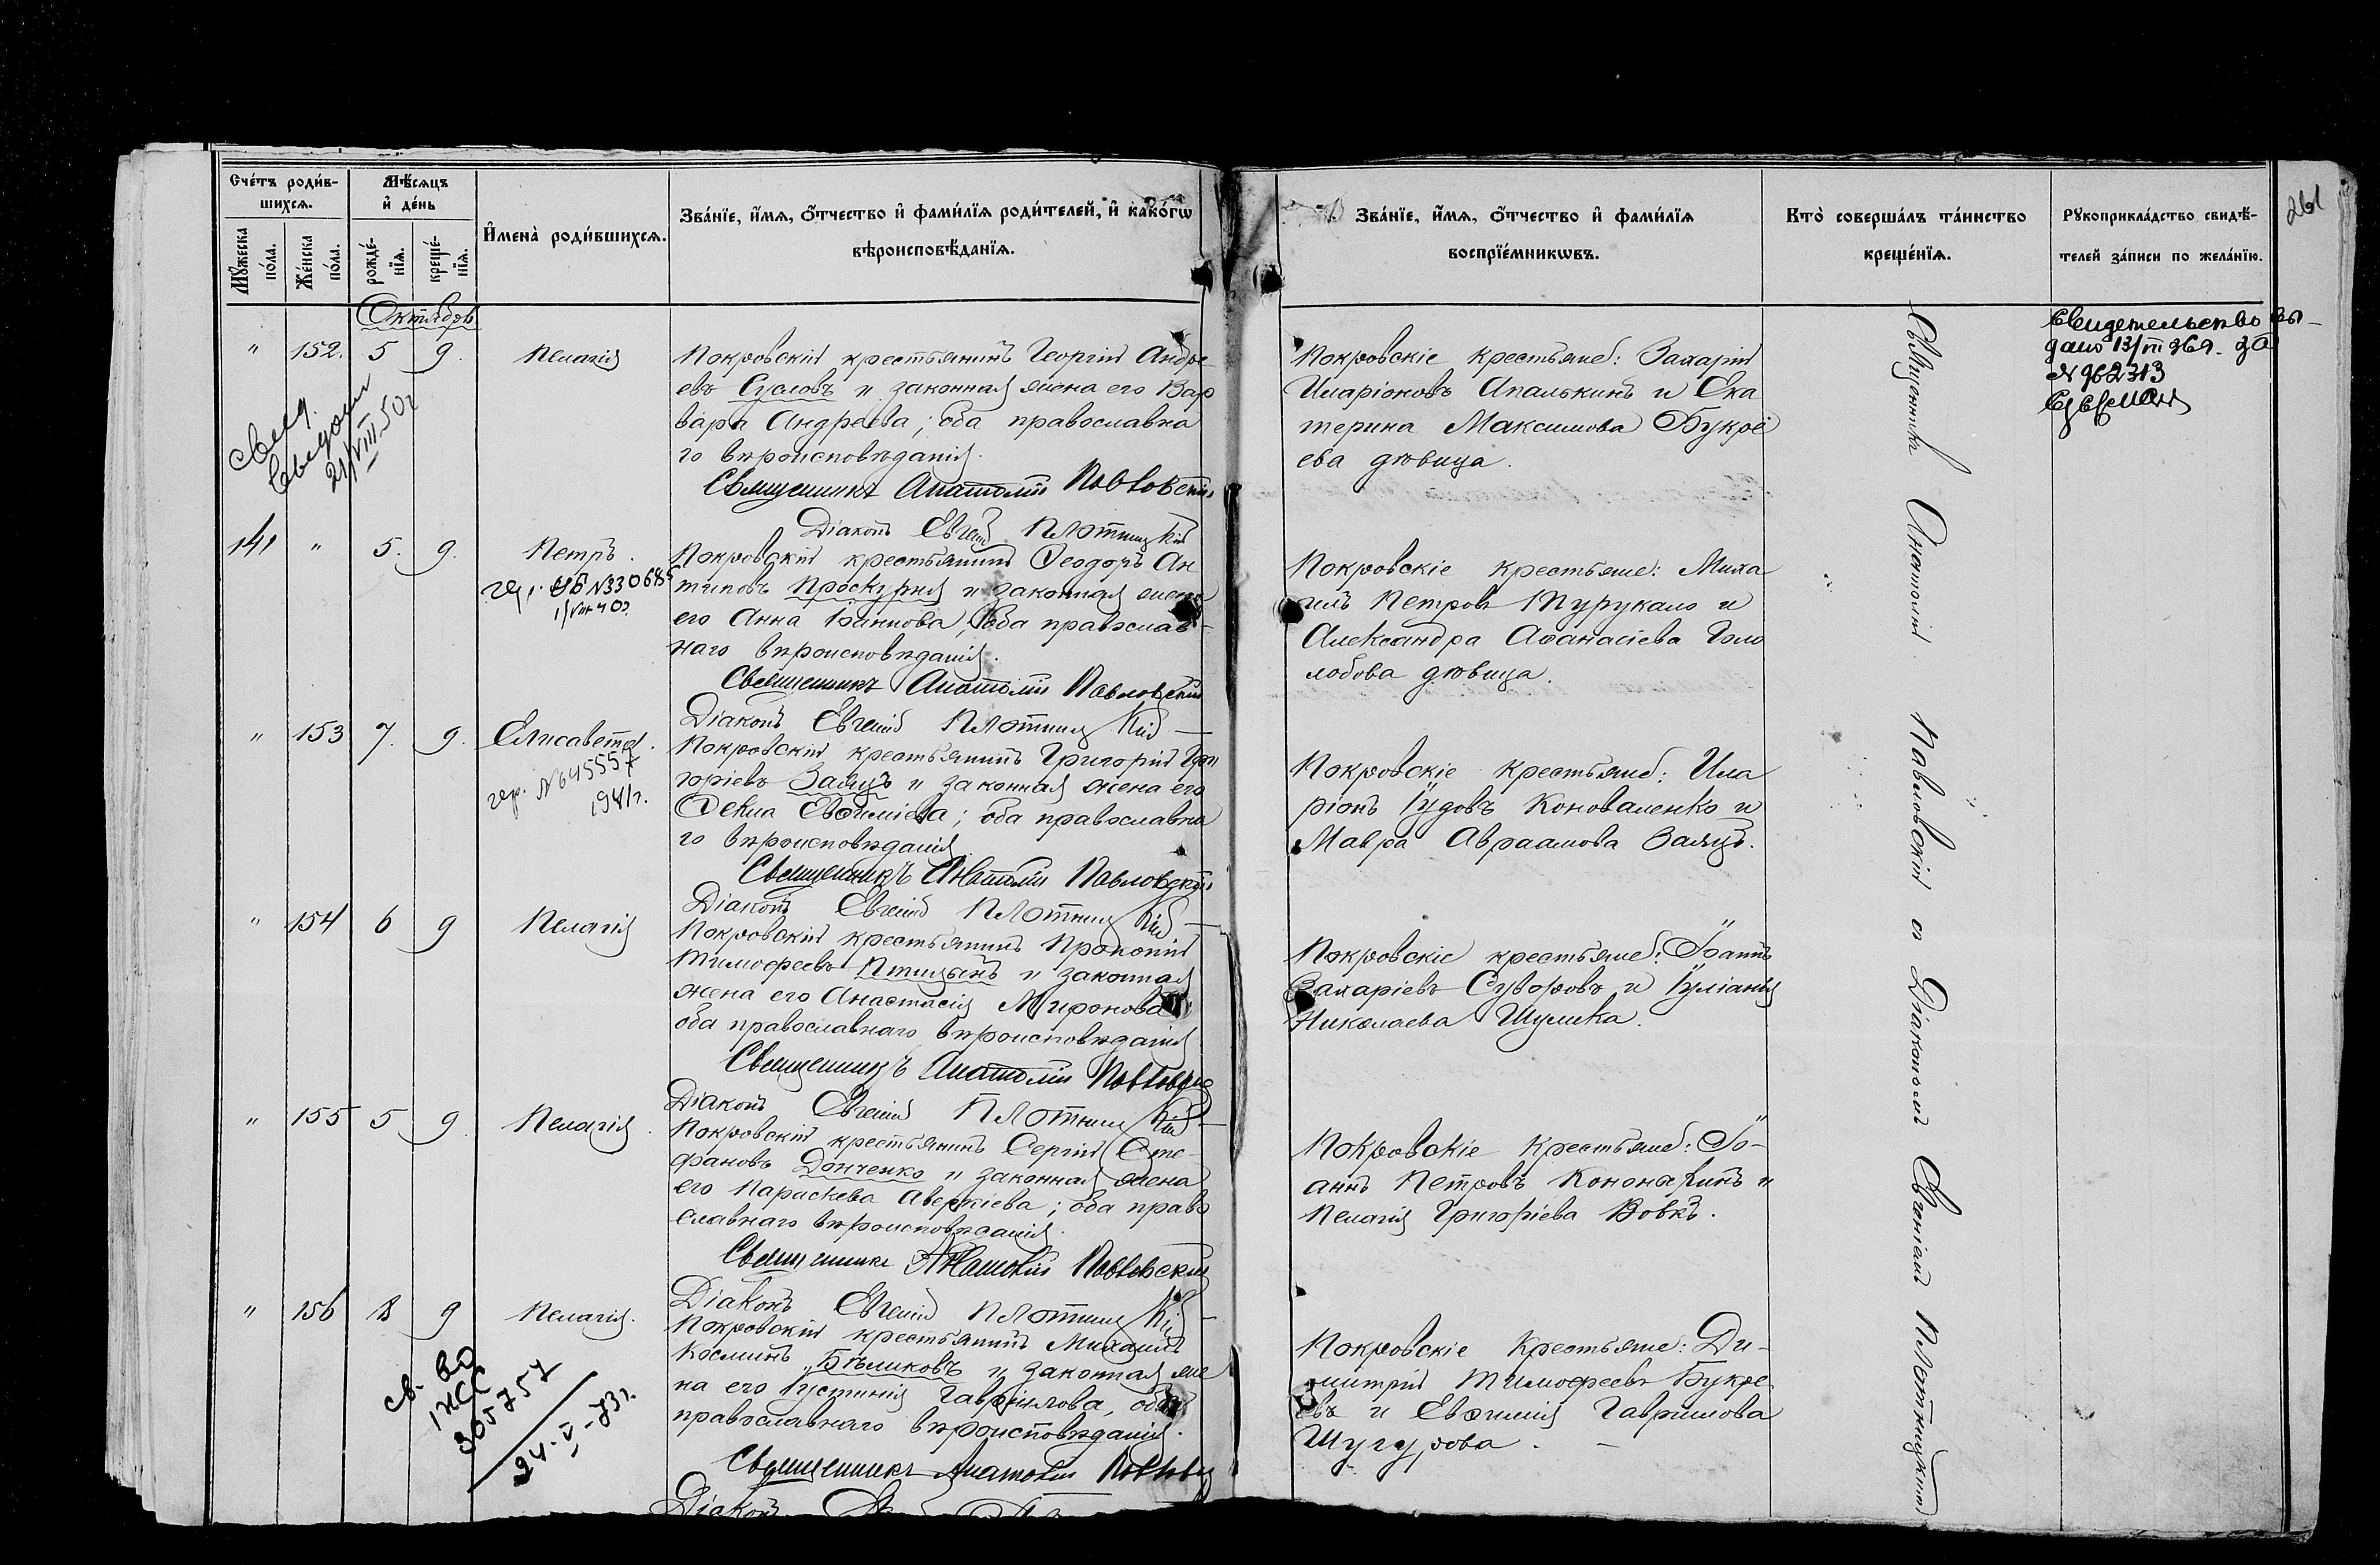 261
Счетъ родив-
шихся.
Мѣсяцъ
и день
Мужеска пола.
Женска пола.
рожде-
нія.
креще-
нія.
Имена родившихся.
Званіе, имя, отчество и фамилія родителей, и какогω
вѣроисповѣданія.
Званіе, имя, отчество и фамилія
воспріемникωвъ.
Кто совершалъ таинство
крещенія.
Рукоприкладство свидѣ-
телей записи по желанію.
Октябрь
" 152. 5 9. Пелагія
Покровскій крестьянинъ Георгій Андре
евъ Сусловъ и законная жена его Вар
вара Андреева; оба православна
го вѣроисповѣданія.
Священникъ Анатолій Павловскій
Діаконъ Евгеній Плотницкій
Покровскіе крестьяне: Захарій
Иларіоновъ Апалькинъ и Ека
терина Максимова Букре
ева дѣвица.
Свидетельство вы-
дано 13/III 969. за
№ 962313
свид.
21/VIII 50 г
141 " 5. 9. Петръ.
1/VIII 40 г.
Покровскій крестьянинъ Ѳеодоръ Ан
типовъ Проскурня и законная жена
его Анна Іоаннова, оба православ-
наго вѣроисповѣданія.
Священникъ Анатолій Павловскій
Діаконъ Евгеній Плотницкій
Покровскіе крестьяне: Миха
илъ Петровъ Турукало и
Александра Аѳанасіева Голо
лобова дѣвица.
" 153 7. 9. Елисавета.
гер. № 645557
1941 г.
Покровскій крестьянинъ Григорій Гри
горіевъ Заяцъ и законная жена его
Ѳекла Евѳиміева; оба православна
го вѣроисповѣданія.
Священникъ Анатолій Павловскій
Діаконъ Евгеній Плотницкій
Покровскіе крестьяне: Ила
ріонъ Іудовъ Коноваленко и
Мавра Авраамова Заяцъ.
" 154 6 9 Пелагія
Покровскій крестьянинъ Прокопій
Тимофеевъ Птицынъ и законная
жена его Анастасія Миронова
оба православнаго вѣроисповѣданія
Священникъ Анатолій Павловскій
Діаконъ Евгеній Плотницкій
Покровскіе крестьяне: Іоаннъ
Захаріевъ Суворовъ и Іуліанія
Николаева Шулика.
" 155 5 9. Пелагія.
Покровскій крестьянинъ Сергій Сте-
фановъ Донченко и законная жена
его Параскева Аверкіева; оба право
славнаго вѣроисповѣданія.
Священникъ Анатолій Павловскій
Діаконъ Евгеній Плотницкій
Покровскіе крестьяне: Іо-
аннъ Петровъ Кононыхинъ и
Пелагія Григоріева Вовкъ.
" 156 8 9 Пелагія.
св-во
1ЖС
305757
24-V-73 г.
Покровскій крестьянинъ Михаилъ
Косминъ Бѣликовъ и законная же
на его Іустинія Гавріилова, оба
православнаго вѣроисповѣданія.
Священникъ Анатолій Павловскій
Діаконъ
Покровскіе крестьяне: Ди-
митрій Тимофеевъ Букре
евъ и Евѳимія Гавриилова
Шугурова.
Священникъ Анатолій Павловскій съ Діакономъ Евгеніемъ Плотницкимъ